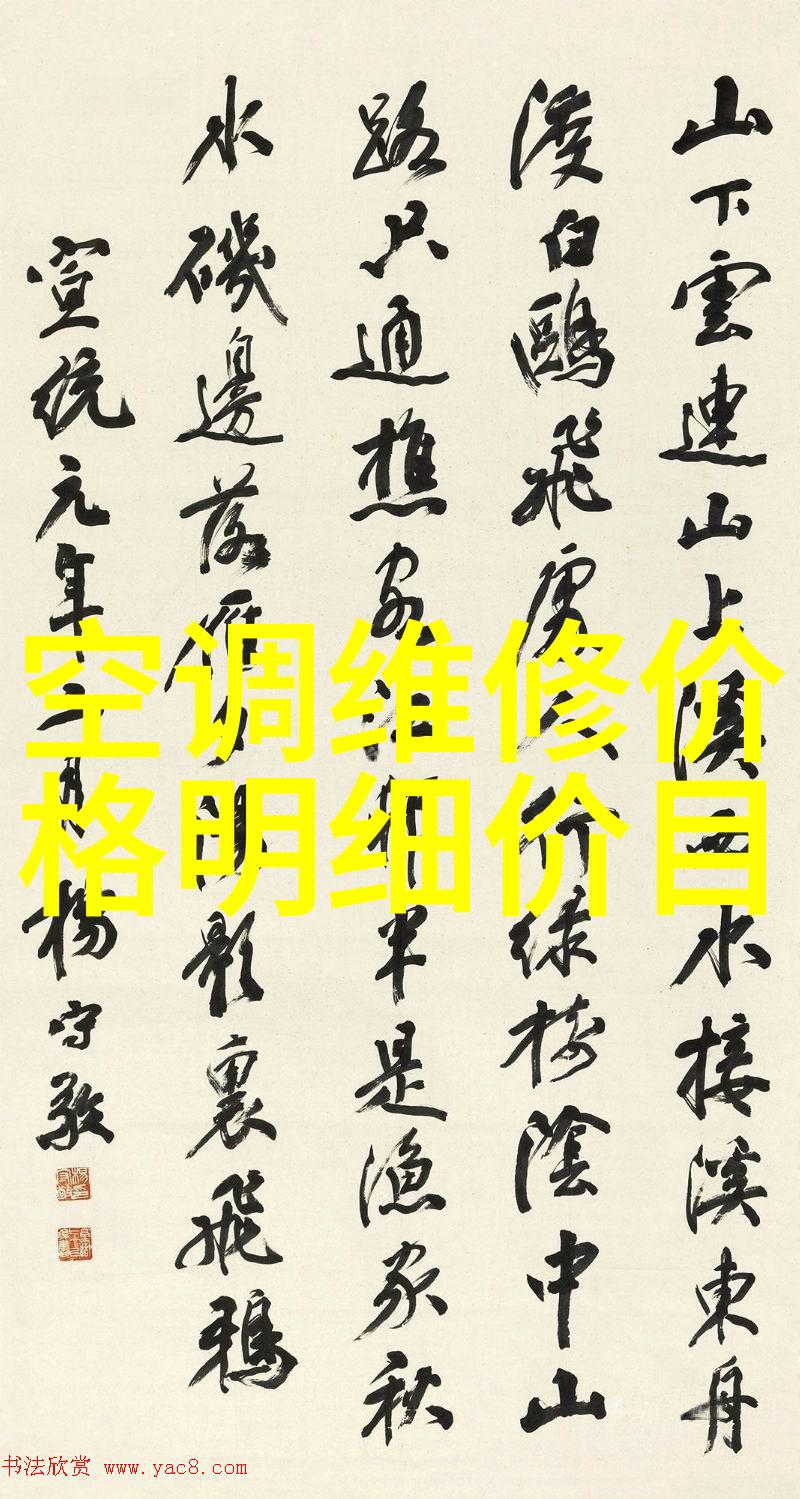 山下雲連山上溪西水接溪東舟
渡白鷗飛處人行綠樹陰中山
路只通樵客江村半是漁家秋
水磯邊落雁夕陽影裏飛鴉
宣統元年二月楊守敬
空调维修价
格明细价目
书法欣赏 www.yac8.com